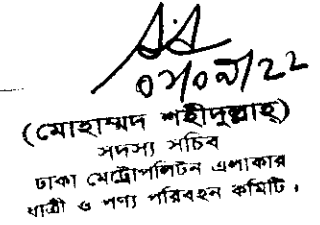 ০৭/০৯/22
(মোহাম্মদ শহীদুল্লাহ)
সদস্য সচিব
ঢাকা মেট্রোপলিটন এলাকার
যাত্রী ও পণ্য পরিবহন কমিটি।